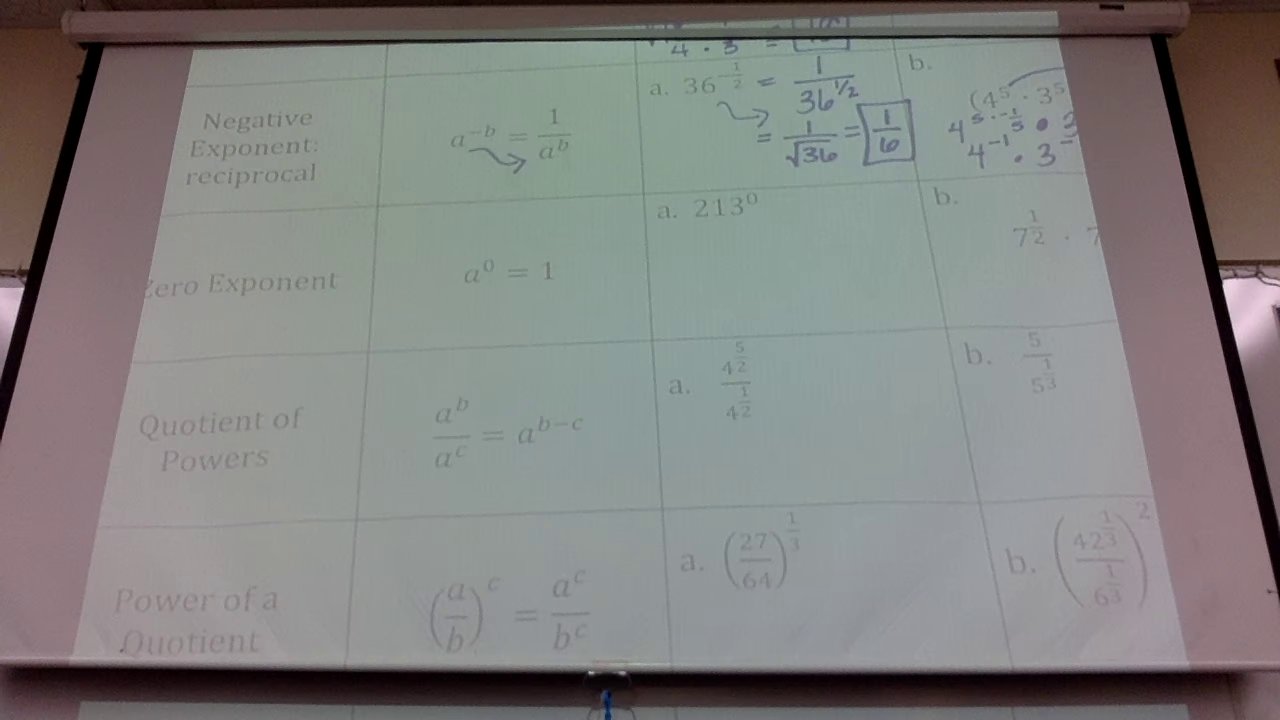 4 · 3 =
Negative
Exponent:
reciprocal
a^{-b} = 1/a^b
a. 36^{-1/2} = 1/36^{1/2}
= 1/√36 = 1/6
b.
(4^5 · 3^5
4^{5·-1/5} · 3
4^{-1} · 3^-
Zero Exponent
a^0 = 1
a. 213^0
b.
7^{1/2} · 7
Quotient of
Powers
a^b/a^c = a^{b-c}
a. 4^{5/2}/4^{1/2}
b. 5/5^{1/3}
Power of a
Quotient
(a/b)^c = a^c/b^c
a. (27/64)^{1/3}
b. (42^{1/3}/6^{1/3})^2